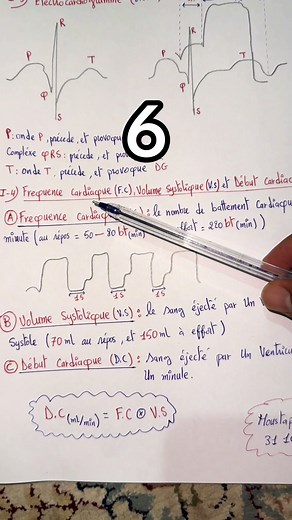 Electrocardiogramme
R
R
P
T
P
T
Q
Q
S
S
6
P: onde P, précède, et provoque
Complexe QRS: précède, et
T: onde T, précède, et provoque DG
I-4) Frequence Cardiaque (F.C), Volume Systolique (V.S) et Début Cardiaq
Ⓐ Frequence Cardiaque : le nombre de battement Cardiaque
minute (au répos = 50-80 bt/min) = 220 bt/min)
1s 1s 1s
Ⓑ Volume Systolique (V.S) : le sang éjecté par un V
Systole (70 ml au répos, et 150 ml à effort)
Ⓒ Début Cardiaque (D.C) : sang éjecté par un Ventricu
Un minute.
D.C (ml/min) = F.C ⊗ V.S
Moustap
31 10